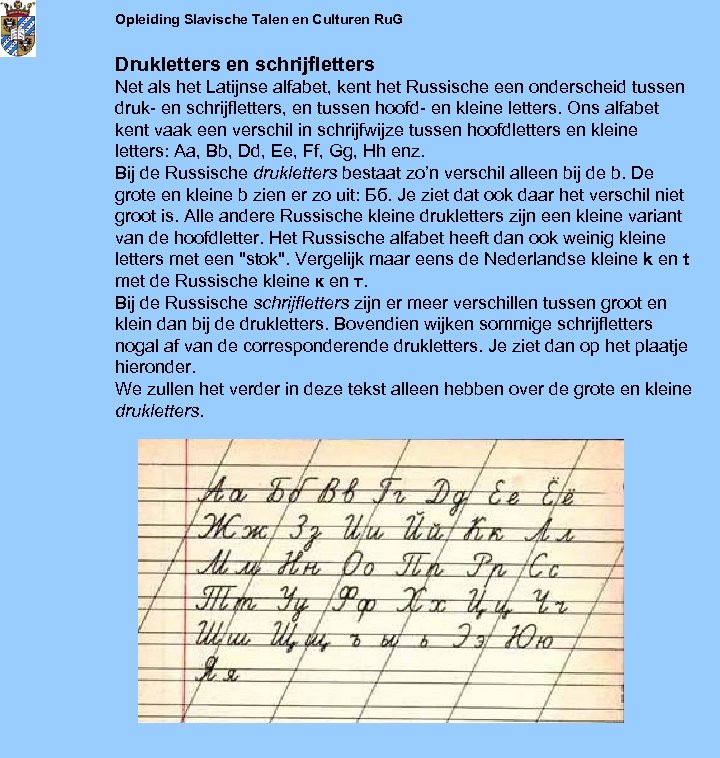 Opleiding Slavische Talen en Culturen Ru.G
Drukletters en schrijfletters
Net als het Latijnse alfabet, kent het Russische een onderscheid tussen
druk- en schrijfletters, en tussen hoofd- en kleine letters. Ons alfabet
kent vaak een verschil in schrijfwijze tussen hoofdletters en kleine
letters: Aa, Bb, Dd, Ee, Ff, Gg, Hh enz.
Bij de Russische drukletters bestaat zo’n verschil alleen bij de b. De
grote en kleine b zien er zo uit: Бб. Je ziet dat ook daar het verschil niet
groot is. Alle andere Russische kleine drukletters zijn een kleine variant
van de hoofdletter. Het Russische alfabet heeft dan ook weinig kleine
letters met een "stok". Vergelijk maar eens de Nederlandse kleine k en t
met de Russische kleine к en т.
Bij de Russische schrijfletters zijn er meer verschillen tussen groot en
klein dan bij de drukletters. Bovendien wijken sommige schrijfletters
nogal af van de corresponderende drukletters. Je ziet dan op het plaatje
hieronder.
We zullen het verder in deze tekst alleen hebben over de grote en kleine
drukletters.
Аа Бб Вв Гг Дд Ее Ёё
Жж Зз Ии Йй Кк Лл
Мм Нн Оо Пп Рр Сс
Тт Уу Фф Хх Цц Чч
Шш Щщ ъ ы ь Ээ Юю
Яя